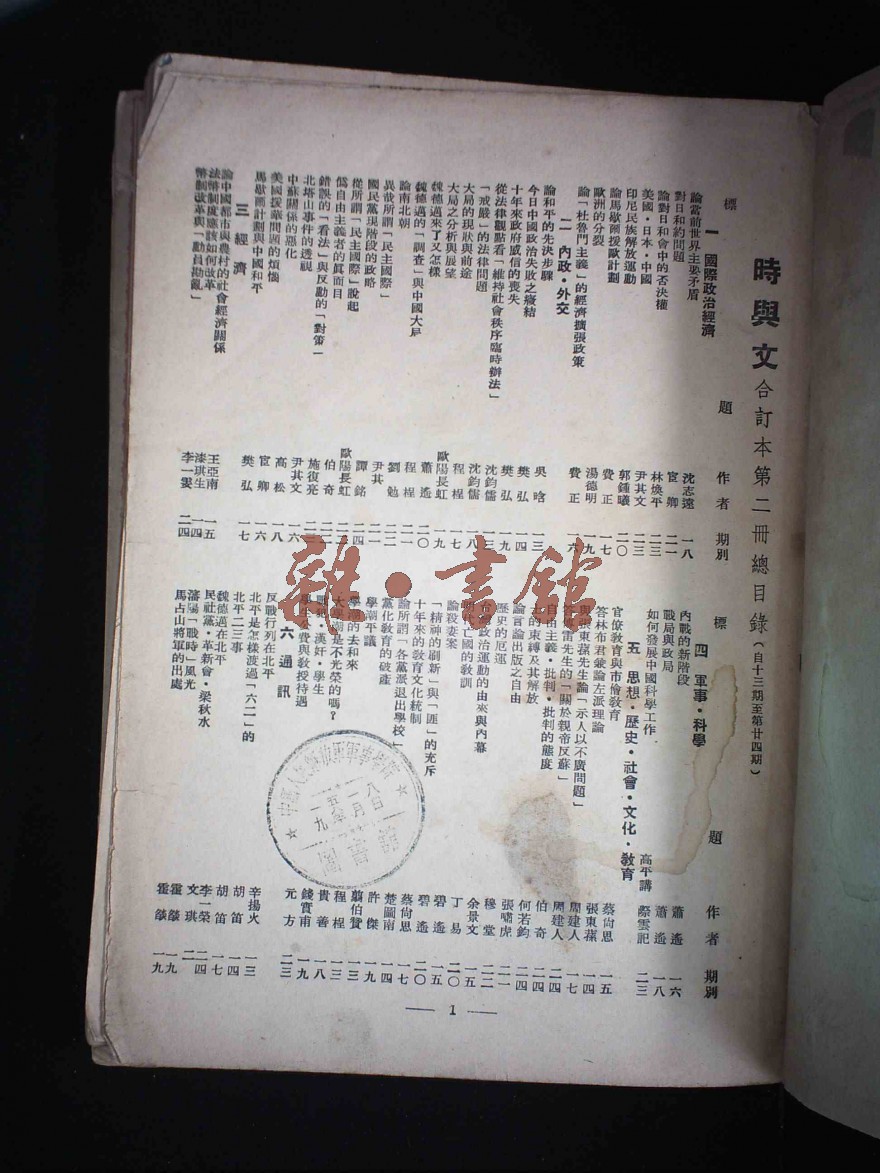 時與文合訂本第二冊總目錄(自十三期至第廿四期)
標 題 作者 期別
一 國際政治經濟
論當前世界主要矛盾 沈志遠 一八
對日和約問題 宦鄉 二一
論對日和會中的否決權 林煥平 二三
美國・日本・中國 尹其文 二三
印尼民族解放運動 郭鍾曦 二〇
論馬歇爾援歐計劃 費正 一七
歐洲的分裂 湯德明 一九
論「杜魯門主義」的經濟擴張政策 費正 一六
二 內政・外交
論和平的先決步驟 吳晗 一三
今日中國政治失敗之癥結 樊弘 一四
十年來政府威信的喪失 樊弘 一九
從法律觀點看「維持社會秩序臨時辦法」 沈鈞儒 一三
「戒嚴」的法律問題 沈鈞儒 一八
大局的現狀與前途 程桯 一七
大局之分析與展望 歐陽長虹 一九
魏德邁來了又怎樣 蕭遙 二〇
魏德邁的「調查」與中國大局 程桯 二一
論南北朝 劉勉
異哉所謂「民主國際」 尹其 二一
國民黨現階段的政略 譚銘 二四
從所謂「民主國際」說起 歐陽長虹
僞自由主義者的眞面目 伯奇
錯誤的「看法」與反動的「對策」 施復亮
北塔山事件的透視 尹其文 一六
中蘇關係的惡化 高松 一八
美國援華問題的煩惱 宦鄉 一六
馬歇爾計劃與中國和平 樊弘 一七
三 經濟
論中國都市與農村的社會經濟關係 王亞南 一五
法幣制度應該如何改革 漆琪生 一四
幣制改革與「動員戡亂」 李一雯 二四
標 題 作者 期別
四 軍事・科學
內戰的新階段 蕭遙 一六
戰局與政局 蕭遙 一八
如何發展中國科學工作 高平講 蔡雲記 二三
五 思想・歷史・社會・文化・教育
官僚教育與市儈教育 蔡尙思 一五
答林布君兼論左派理論 張東蓀 一四
與張東蓀先生論「示人以不廣問題」 周建人 一七
先生的「關於親帝反蘇」 周建人 二四
自由主義・批判・批判的態度 伯奇 二四
的束縛及其解放 何若鈞 二四
論言論出版之自由 張嘯虎 二一
歷史的厄運 穆堂 二二
政治運動的由來與內幕 余景文
明代亡國的教訓 丁易 二〇
論殺妻案 碧遙 一五
「精神的刷新」與「匪」的充斥 碧遙 二〇
十年來的教育文化統制 蔡尙思 一七
論所謂「各黨派退出學校」 楚圖南 一四
黨化教育的破產 許傑 一九
學潮平議 翦伯贊 一四
學潮的去和來 程桯 一三
大學潮是不光榮的嗎? 貴善 一八
漢奸・學生 錢實甫 一九
學生公費與教授待遇 元方 二三
六 通訊
反戰行列在北平 辛揚火 一三
北平是怎樣渡過「六二」的 胡笛 一四
北平二三事 胡笛 一七
魏德邁在北平 李一榮 二四
民社黨・革新會・梁秋水 文琪
瀋陽「戰時」風光 霍燄 一九
馬占山將軍的出處 霍燄 一九
— 1 —
雜・書館
圖書館
一九五二年八月八日